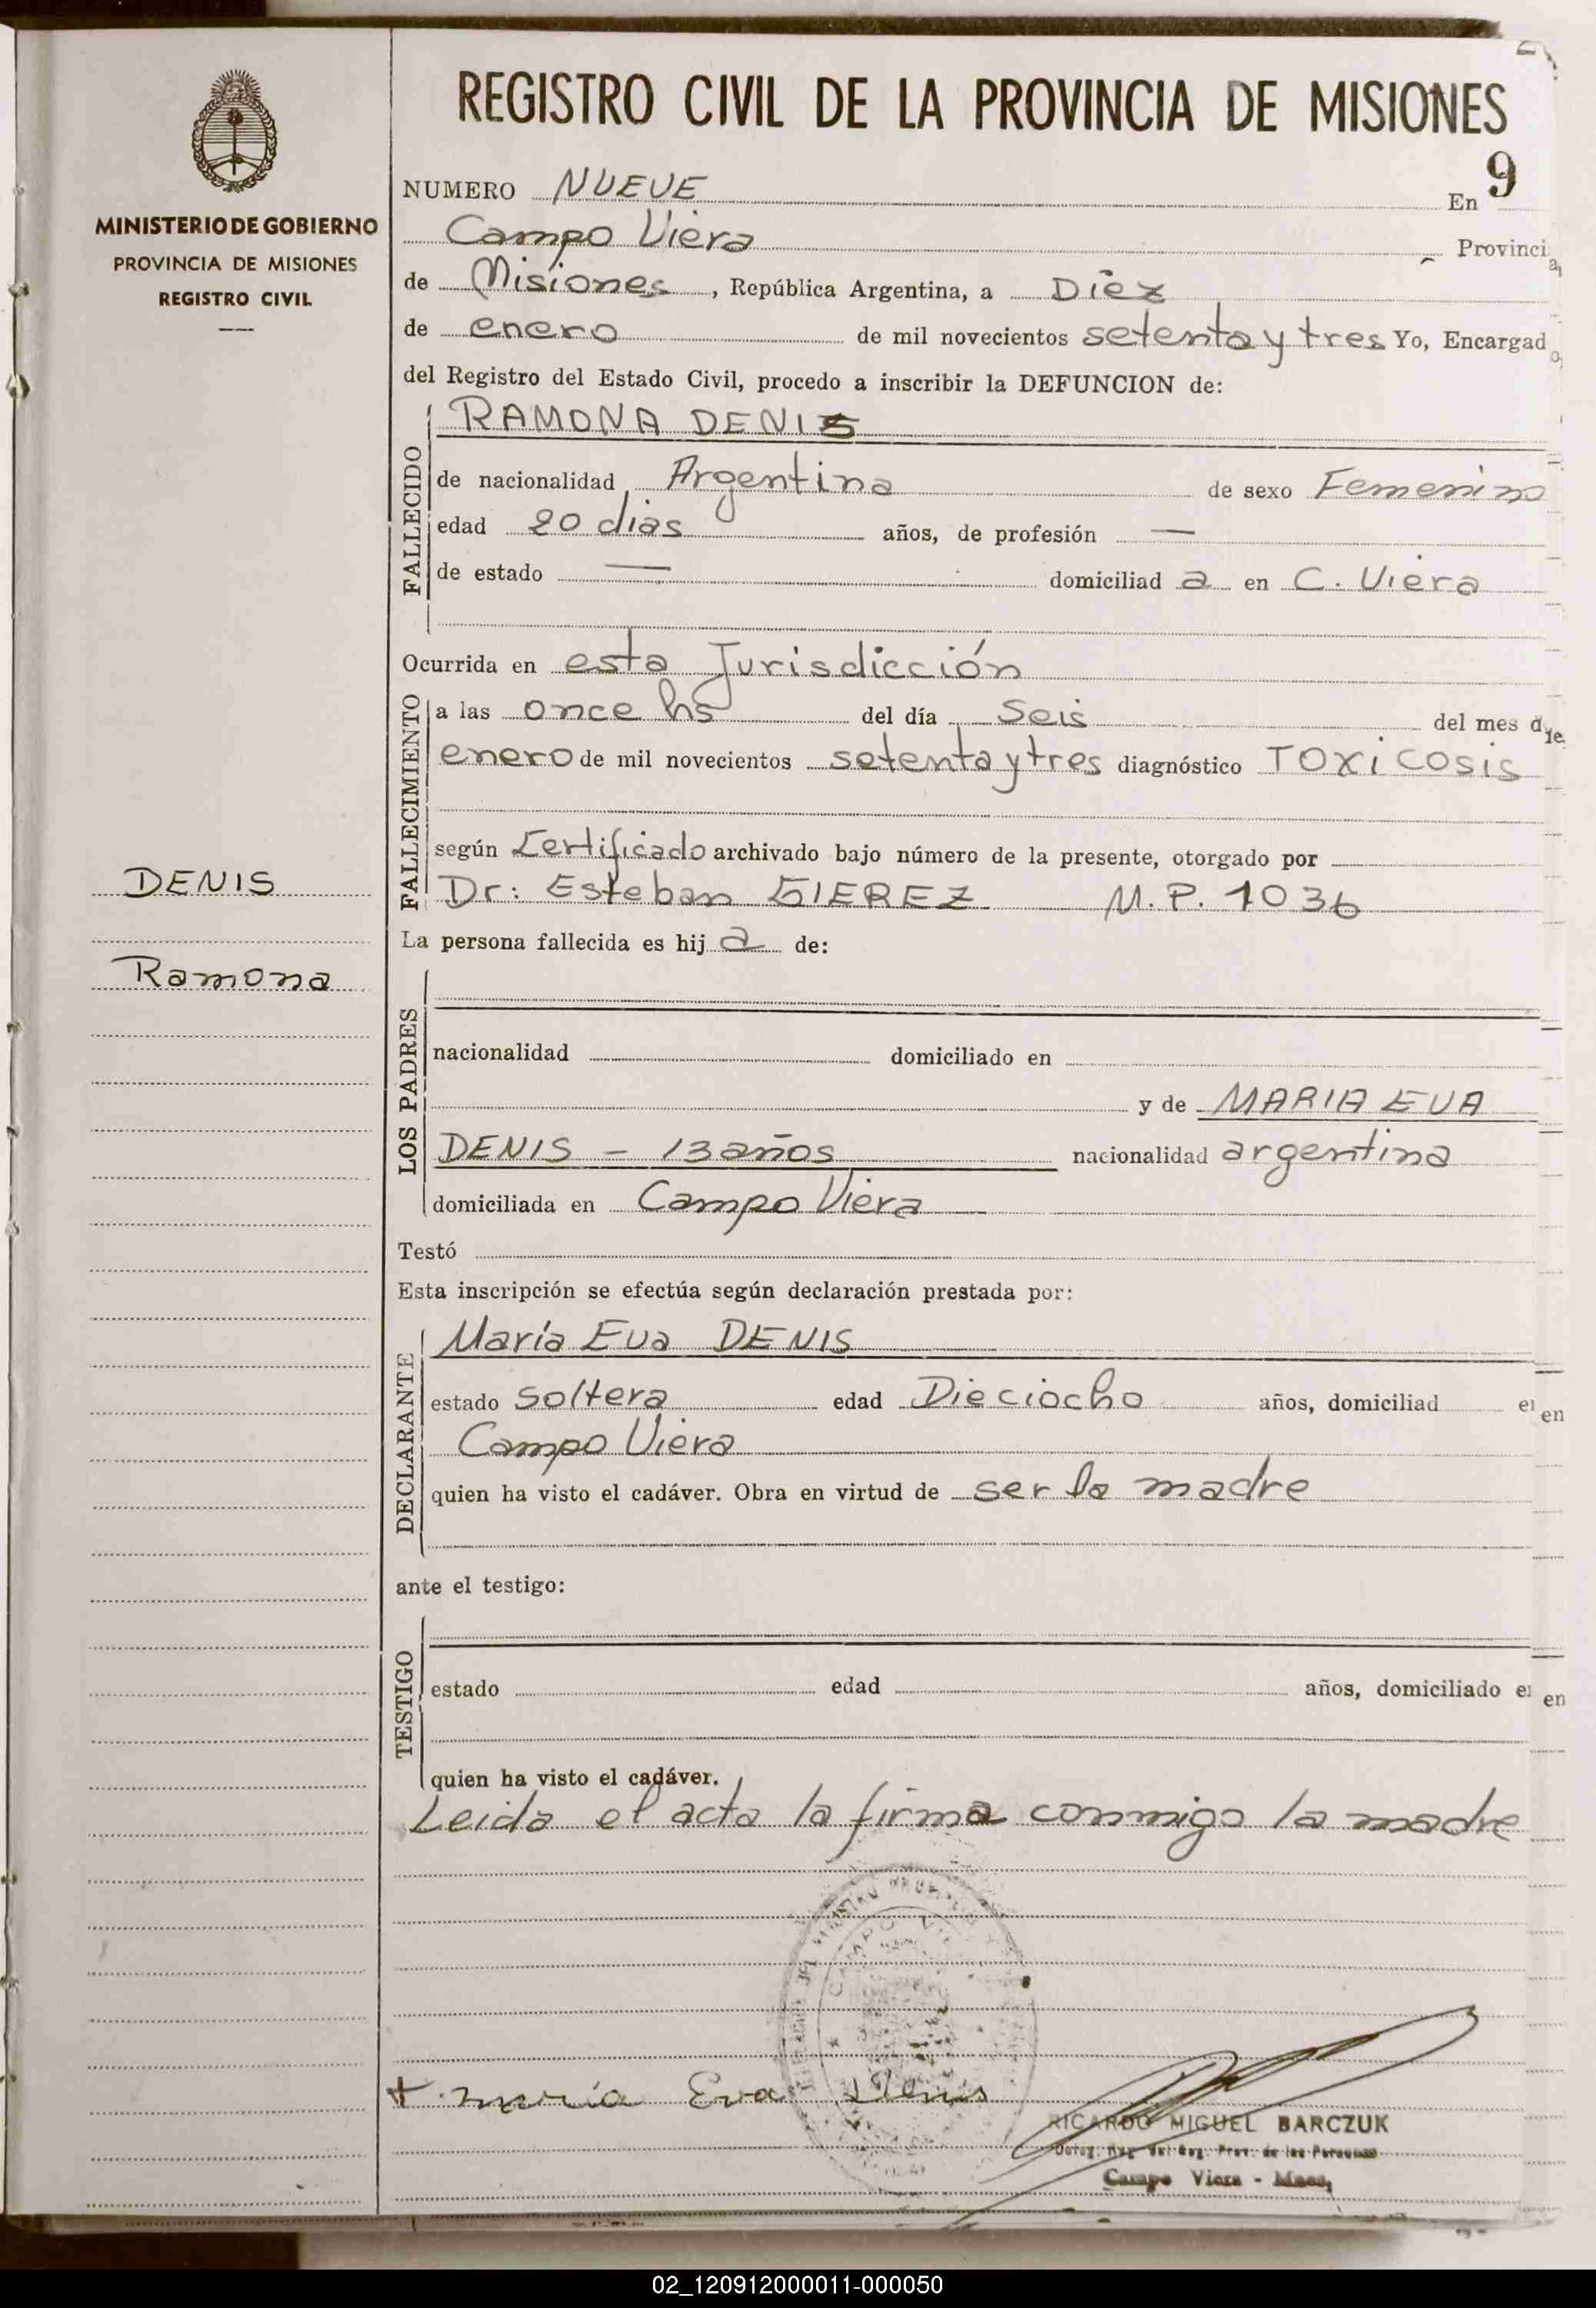 REGISTRO CIVIL DE LA PROVINCIA DE MISIONES
9
MINISTERIO DE GOBIERNO
PROVINCIA DE MISIONES
REGISTRO CIVIL
NUMERO NUEVE En
Campo Viera Provincia
de Misiones, República Argentina, a Diez
de enero de mil novecientos setenta y tres Yo, Encargado
del Registro del Estado Civil, procedo a inscribir la DEFUNCION de:
FALLECIDO
RAMONA DENIS
de nacionalidad Argentina de sexo Femenino
edad 20 dias años, de profesión —
de estado — domiciliad a en C. Viera
Ocurrida en esta Jurisdicción
FALLECIMIENTO
a las once hs del día Seis del mes de
enero de mil novecientos setenta y tres diagnóstico TOXICOSIS
según Certificado archivado bajo número de la presente, otorgado por
Dr: Esteban GIEREZ M.P. 1036
DENIS
Ramona
La persona fallecida es hij a de:
LOS PADRES
nacionalidad domiciliado en
y de MARIA EVA
DENIS - 13 años nacionalidad argentina
domiciliada en Campo Viera
Testó
Esta inscripción se efectúa según declaración prestada por:
DECLARANTE
María Eva DENIS
estado soltera edad Dieciocho años, domiciliad en
Campo Viera
quien ha visto el cadáver. Obra en virtud de ser la madre
ante el testigo:
TESTIGO
estado edad años, domiciliado en
quien ha visto el cadáver.
Leida el acta la firma conmigo la madre
+ maria Eva Denis
RICARDO MIGUEL BARCZUK
Campo Viera - Mnes.
02_120912000011-000050